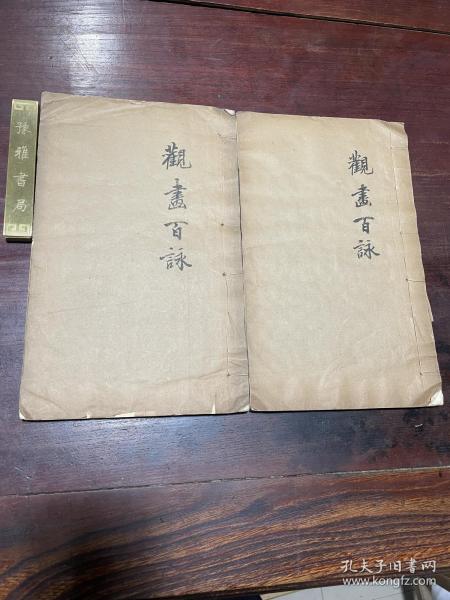 豫雅書局
觀畫百詠
觀畫百詠
孔夫子旧书网
www.kongfz.com